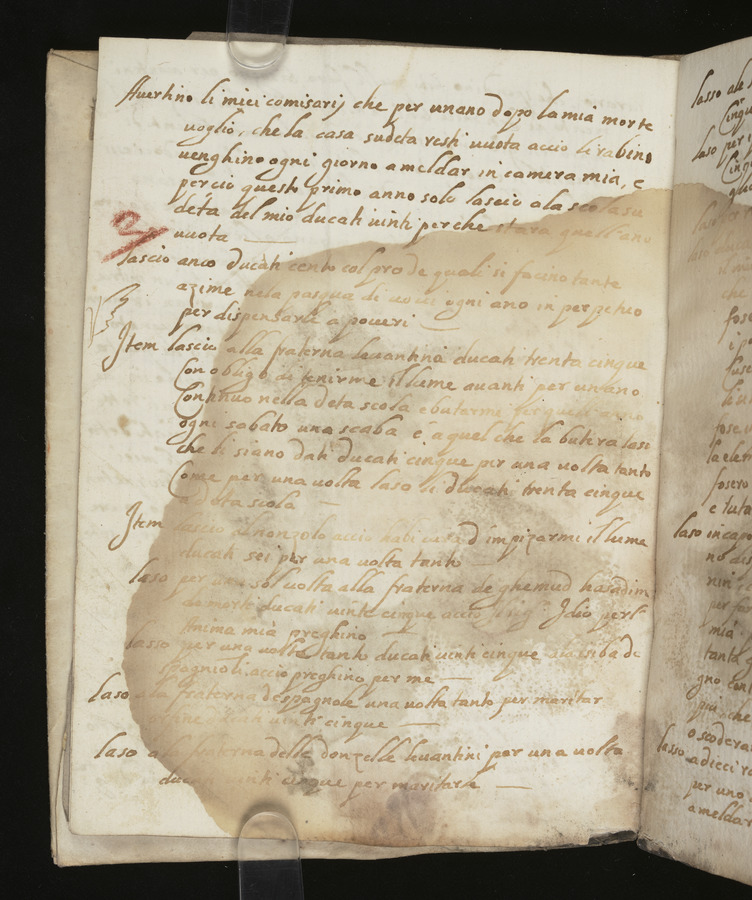 Auertino li miei comisarij che per un ano dopo la mia morte
uoglio, che la casa sudeta resti uuota acciò li rabini
uenghino ogni giorno a meldar in camera mia, e
perciò questo primo anno solo lascio a la scola su
deta del mio ducati uinti perche stara quest ano
uuota
lascio anco ducati cento col pro de quali si facino tante
azime nela pasqua di ogni ano in perpetuo
per dispensarle a poueri
Item lascio alla fraterna leuantina ducati trenta cinque
con obligo di tenirme il lume auanti per un ano
continuo nella deta scola e butarme per quest anno
ogni sabato una scaba e a quel che la butera lasi
che li siano dati ducati cinque per una uolta tanto
come per una uolta laso li ducati trenta cinque
a deta scola
Item lascio al nonzolo acciò habi cura d'impizarmi il lume
ducati sei per una uolta tanto
laso per una sol uolta alla fraterna de ghemud hasadim
da morte ducati uinti cinque acciò Idio per l'
Anima mia preghino
lasso per una uolta tanto ducati uinti cinque
spagnioli acciò preghino per me
laso alla fraterna de spagnole una uolta tanto per maritar
orfane ducati uinti cinque
laso ala fraterna delle donzelle leuantini per una uolta
ducati uinti cinque per maritarle
lasso ale
cinqu
laso per
cinq
che
fose
fose u
la elem
fosero
e tuta
laso in capo
no dis
per
mia
tanto
gno con
piu che
o scodera
lasso a dieci r
per uno
a meldar